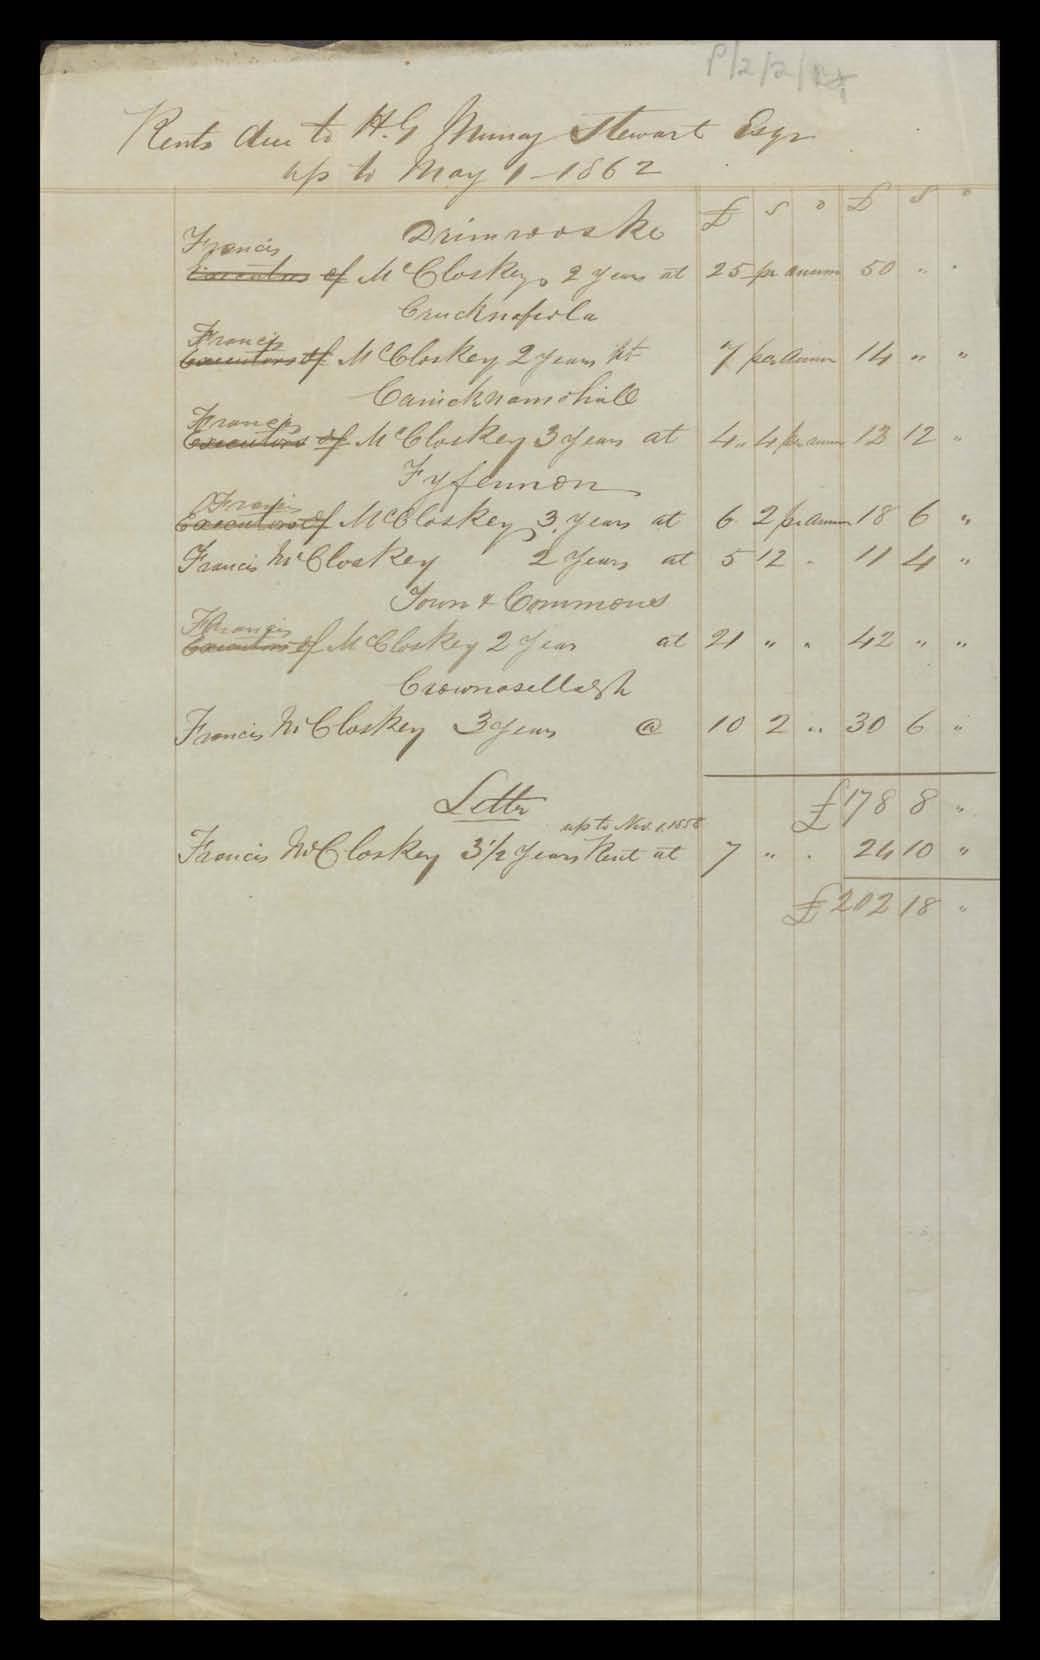 Rents due to H.G Murray Stewart Esqr
up to May 1 - 1862
£ S D £ S D
Drimrooske
Francis
Executors of McCloskey, 2 years at 25 pr annum 50 " "
Crucknafeola
Francis
Executors of McCloskey 2 years at 7 per annum 14 " "
Francis
Executors of McCloskey 3 years at 4 " 4 per annum 12 12 "
Fyfennon
Francis
Executors of McCloskey 3 years at 6 2 pr annum 18 6 "
Francis McCloskey 2 years at 5 12 " 11 4 "
Town & Commons
Francis
Executors of McCloskey 2 Year at 21 " " 42 " "
Francis McCloskey 3 years @ 10 2 " 30 6 "
£178 8 "
up to Nov. 1, 1858
Francis McCloskey 3 1/2 years Rent at 7 " " 24 10 "
£202 18 "